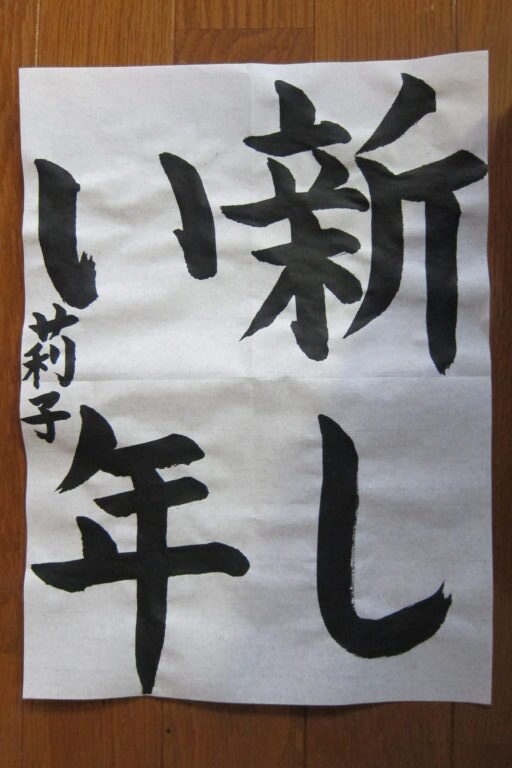 新し
い年
莉子